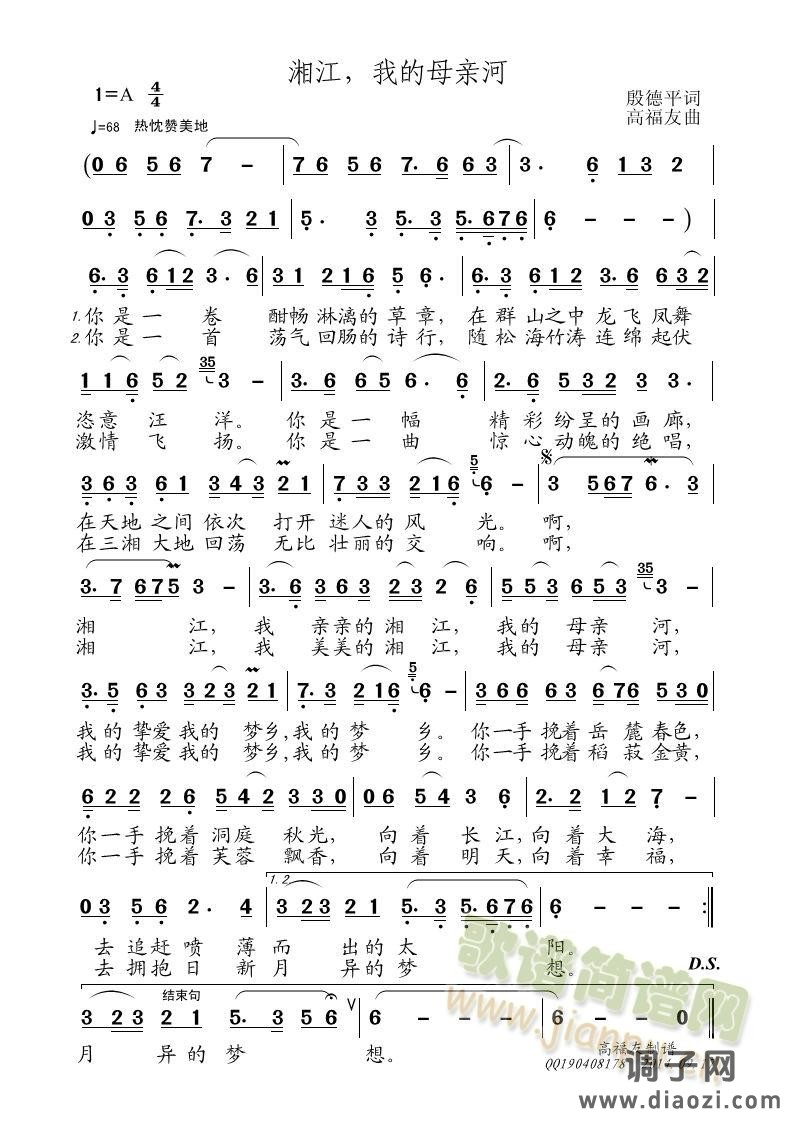 湘江，我的母亲河
1=A 4/4
殷德平词
♩=68 热忱赞美地
高福友曲
(0 6 5 6 7 - | 7 6 5 6 7. 6 6 3 | 3. 6 1 3 2 |
0 3 5 6 7. 3 2 1 | 5. 3 5. 3 5. 6 7 6 | 6 - - - )
6. 3 6 1 2 3. 6 | 3 1 2 1 6 5 6. | 6 2 1 2 3. 6 6 3 2 |
1.你是一 卷 酣畅 淋漓的 草 章， 在 群 山之中 龙 飞 凤舞
2.你是一 首 荡气 回肠的 诗 行， 随 松 海竹涛 连 绵 起伏
1 1 6 5 2 35 3 - | 3. 6 6 5 6. 6 | 2. 2 5 5 3 2 6 3 |
恣意 汪 洋。 你 是 一 幅 精 彩 纷呈的 画 廊，
激情 飞 扬。 你 是 一 曲 惊 心 动魄的 绝 唱，
3 6 3 6 1 3 4 3 2 1 | 7 3 3 2 1 6 5 6 - | 3 5 6 7 6. 3
在天地 之间 依次 打开 迷人的 风 光。 啊，
在三湘 大地 回荡 无比 壮丽的 交 响。 啊，
3. 7 6 7 5 3 - | 3. 6 3 6 3 2 3 2 6 | 5 5 3 6 5 3 35 3 - |
湘 江， 我 亲亲的 湘 江， 我的 母亲 河，
湘 江， 我 美美的 湘 江， 我的 母亲 河，
3. 5 6 3 3 2 3 2 1 | 7. 3 2 1 6 5 6 - | 3 6 6 6 6 3 6 7 6 5 3 0 |
我 的 挚爱 我的 梦乡，我 的 梦 乡。 你一手 挽着 岳 麓 春色，
我 的 挚爱 我的 梦乡，我 的 梦 乡。 你一手 挽着 稻 菽 金黄，
6 2 2 2 2 5 4 2 3 3 0 | 0 6 5 4 3 6 | 2. 2 1 2 7 - |
你一手 挽着 洞庭 秋光， 向 着 长 江，向 着 大 海，
你一手 挽着 芙蓉 飘香， 向 着 明 天，向 着 幸 福，
1.2
0 3 5 6 2. 4 | 3 2 3 2 1 5. 3 5. 6 7 6 | 6 - - - :||
去 追赶 喷 薄 而 出 的 太 阳。
去 拥抱 日 新 月 异 的 梦 想。
D.S.
结束句
3 2 3 2 1 5. 3 5 6 V | 6 - - - | 6 - - 0 ||
月 异 的 梦 想。
歌谱简谱网
高福友制谱
调子网
www.diaozi.com